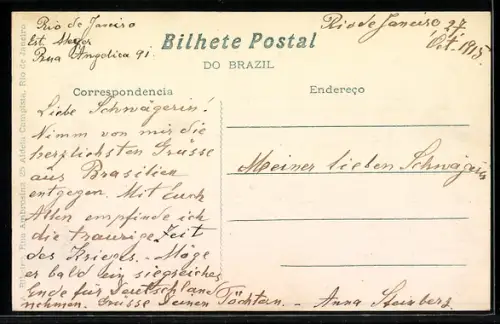 Rio de Janeiro
Est. Meyer
Rua Angelica 91.
Rio de Janeiro 27
Oct. 1915.
Bilhete Postal
DO BRAZIL
Correspondencia
Endereço
Liebe Schwägerin!
Nimm von mir die
herzlichsten Grüsse
aus Brasilien
entgegen. Mit Euch
Allen empfinde ich
die traurige Zeit
des Krieges. - Möge
er bald ein siegreiches
Ende für Deutschland
nehmen. Grüsse Deinen Töchtern. - Anna Steinberg.
Meiner lieben Schwägerin
Rua 25 Aldeia Campista, Rio de Janeiro